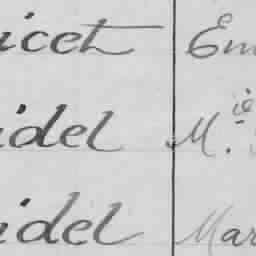 icet Em
idel M.ie
idel Mar